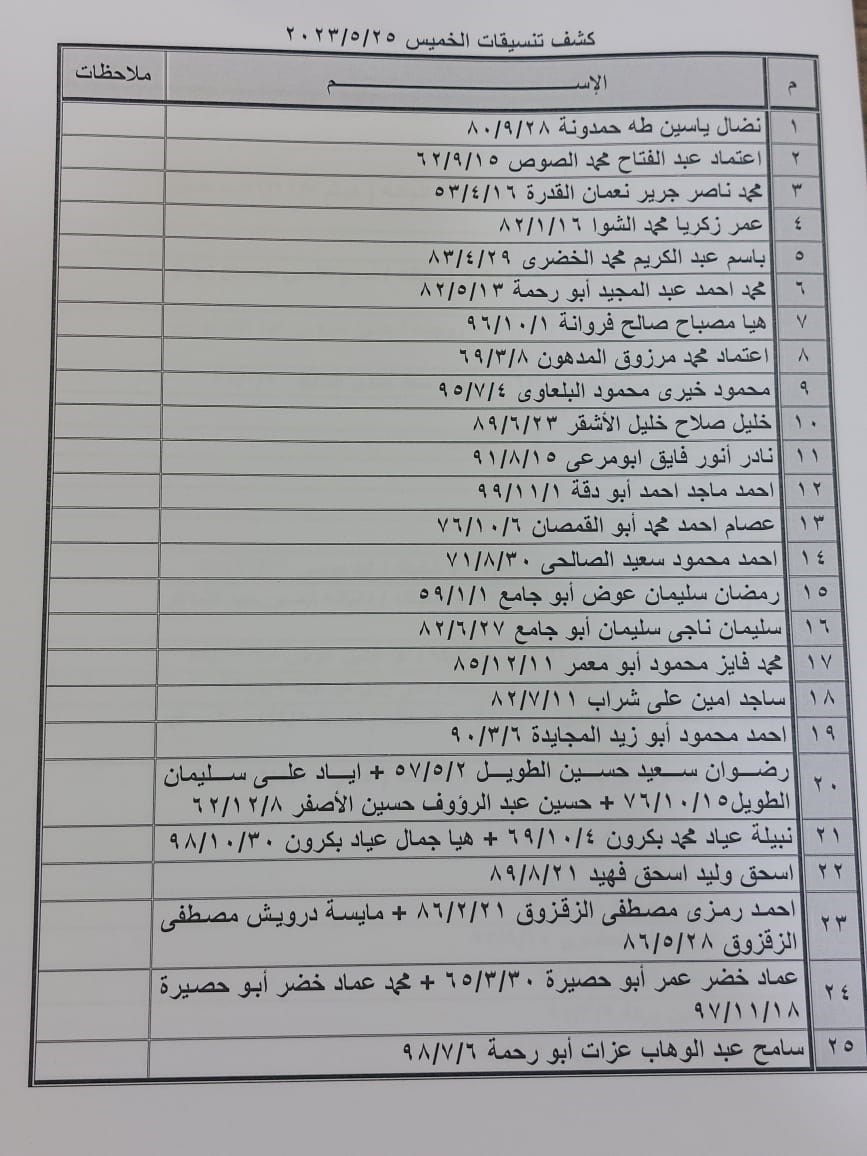 كشف تنسيقات الخميس ٢٠٢٣/٥/٢٥
م الإســـــــــــم ملاحظات
١ نضال ياسين طه حمدونة ٨٠/٩/٢٨
٢ اعتماد عبد الفتاح محمد الصوص ٦٢/٩/١٥
٣ محمد ناصر جرير نعمان القدرة ٥٣/٤/١٦
٤ عمر زكريا محمد الشوا ٨٢/١/١٦
٥ باسم عبد الكريم محمد الخضرى ٨٣/٤/٢٩
٦ محمد احمد عبد المجيد أبو رحمة ٨٢/٥/١٣
٧ هيا مصباح صالح فروانة ٩٦/١٠/١
٨ اعتماد محمد مرزوق المدهون ٦٩/٣/٨
٩ محمود خيرى محمود البلعاوى ٩٥/٧/٤
١٠ خليل صلاح خليل الأشقر ٨٩/٦/٢٣
١١ نادر أنور فايق ابومرعى ٩١/٨/١٥
١٢ احمد ماجد احمد أبو دقة ٩٩/١١/١
١٣ عصام احمد محمد أبو القمصان ٧٦/١٠/٦
١٤ احمد محمود سعيد الصالحى ٧١/٨/٣٠
١٥ رمضان سليمان عوض أبو جامع ٥٩/١/١
١٦ سليمان ناجى سليمان أبو جامع ٨٢/٦/٢٧
١٧ محمد فايز محمود أبو معمر ٨٥/١٢/١١
١٨ ساجد امين على شراب ٨٢/٧/١١
١٩ احمد محمود أبو زيد المجايدة ٩٠/٣/٦
٢٠ رضـوان سـعيد حسـين الطويـل ٥٧/٥/٢ + ايـاد علـى سـليمان
الطويل٧٦/١٠/١٥ + حسين عبد الرؤوف حسين الأصفر ٦٢/١٢/٨
٢١ نبيلة عياد محمد بكرون ٦٩/١٠/٤ + هيا جمال عياد بكرون ٩٨/١٠/٣٠
٢٢ اسحق وليد اسحق فهيد ٨٩/٨/٢١
٢٣ احمد رمزى مصطفى الزقزوق ٨٦/٢/٢١ + مايسة درويش مصطفى
الزقزوق ٨٦/٥/٢٨
٢٤ عماد خضر عمر أبو حصيرة ٦٥/٣/٣٠ + محمد عماد خضر أبو حصيرة
٩٧/١١/١٨
٢٥ سامح عبد الوهاب عزات أبو رحمة ٩٨/٧/٦